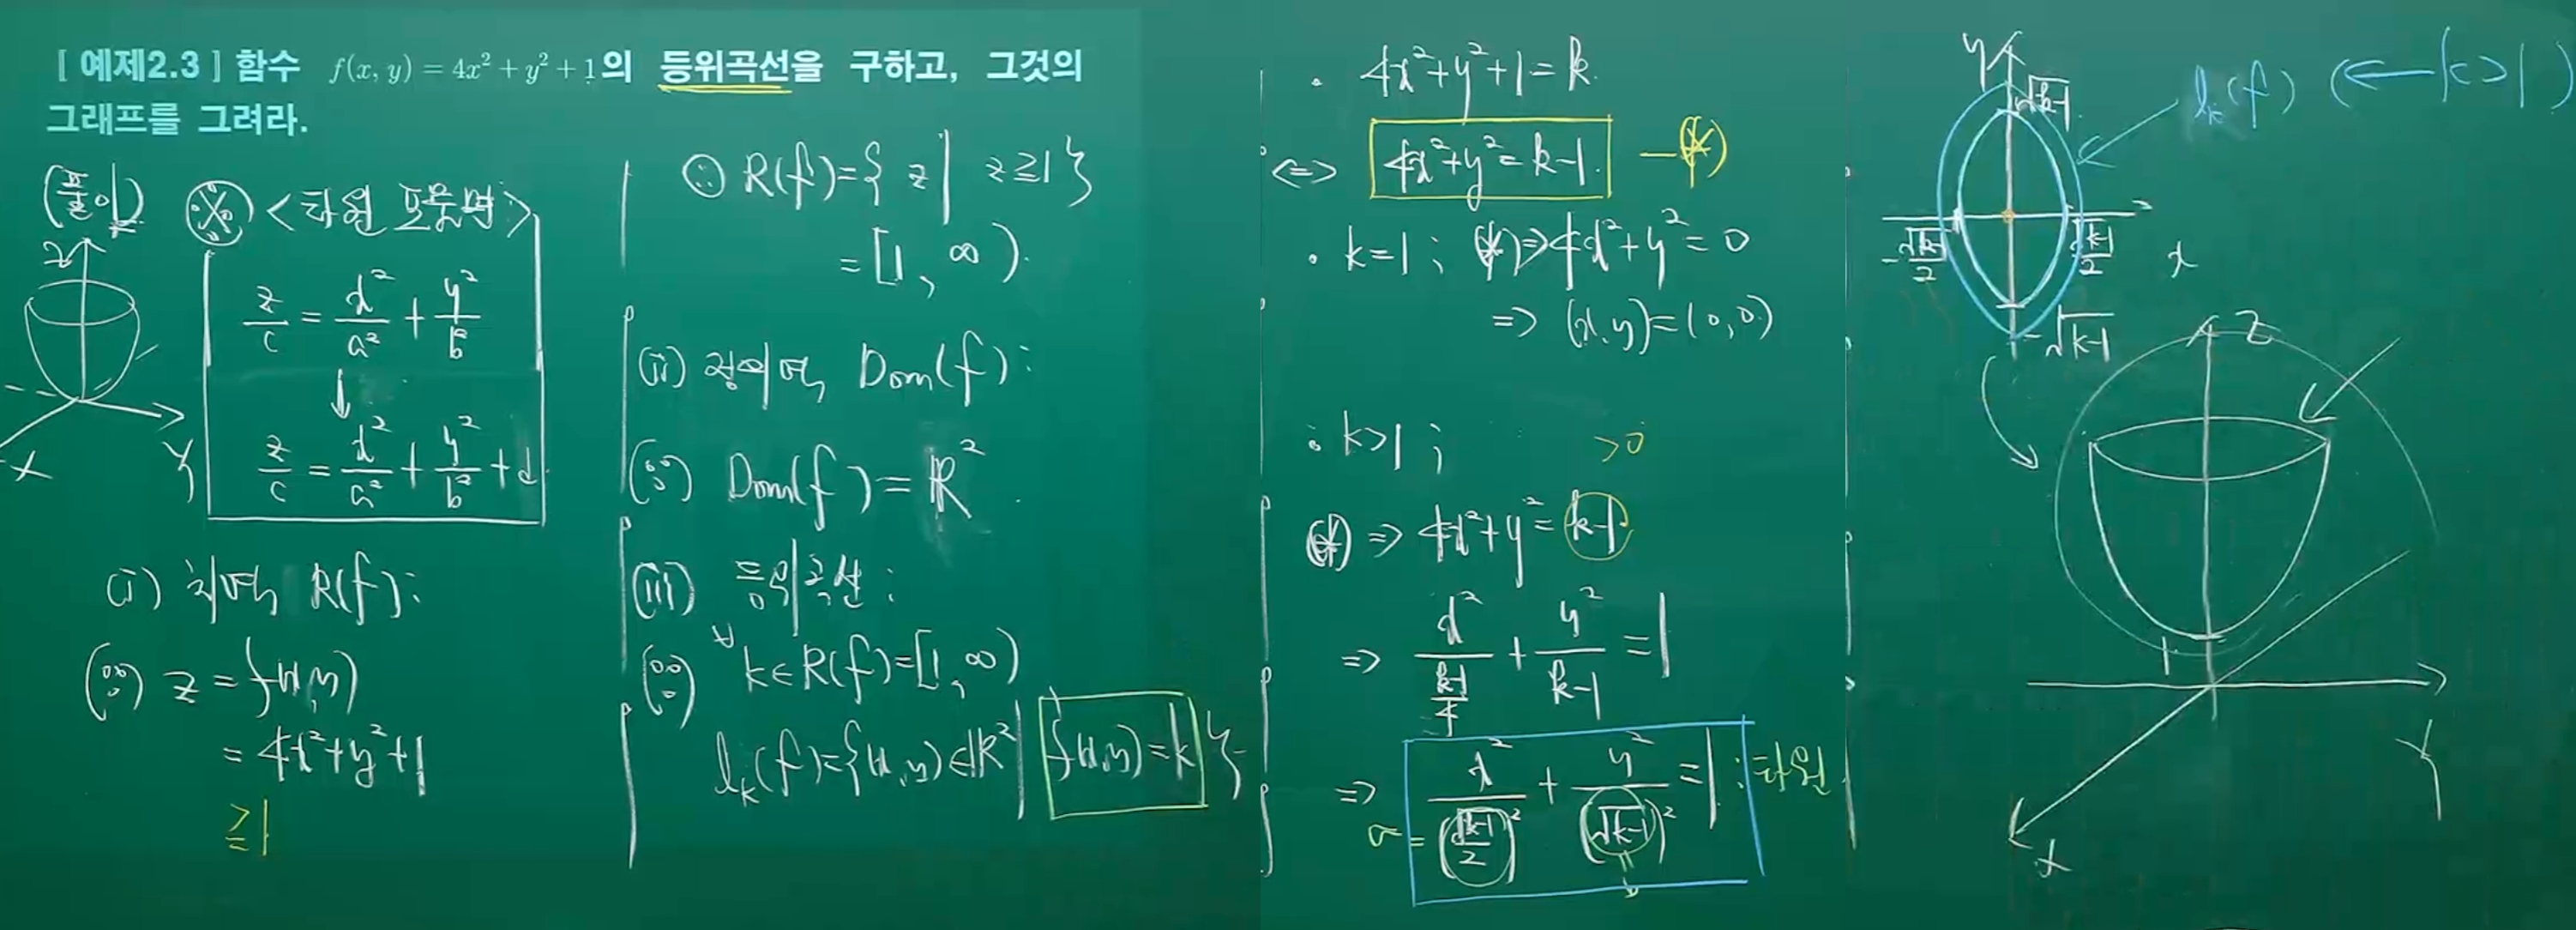 [ 예제2.3 ] 함수 f(x, y) = 4x² + y² + 1의 등위곡선을 구하고, 그것의
그래프를 그려라.
(풀이) ※ <타원 포물면>
z
x
y
z/c = x²/a² + y²/b²
↓
z/c = x²/a² + y²/b² + d
(i) 치역 R(f):
(∵) z = f(x,y)
= 4x²+y²+1
≧1
∴ R(f)={ z | z≧1 }
= [1, ∞).
(ii) 정의역 Dom(f):
(∵) Dom(f) = ℝ².
(iii) 등위곡선:
(∵) ∀k∈R(f)=[1, ∞)
l_k(f)={(x,y)∈ℝ² | f(x,y)=k}
· 4x²+y²+1=k.
⇔ 4x²+y²=k-1. —(*)
· k=1 ; (*)⇒4x²+y²=0
⇒ (x,y)=(0,0)
· k>1 ; >0
(*) ⇒ 4x²+y²=k-1
⇒ x²/((k-1)/4) + y²/(k-1) = 1
⇒ x²/(√(k-1)/2)² + y²/(√(k-1))² = 1 : 타원
a =
= b
y
√(k-1)
l_k(f) (← k>1)
-√(k-1)/2
√(k-1)/2
x
-√(k-1)
z
1
y
x